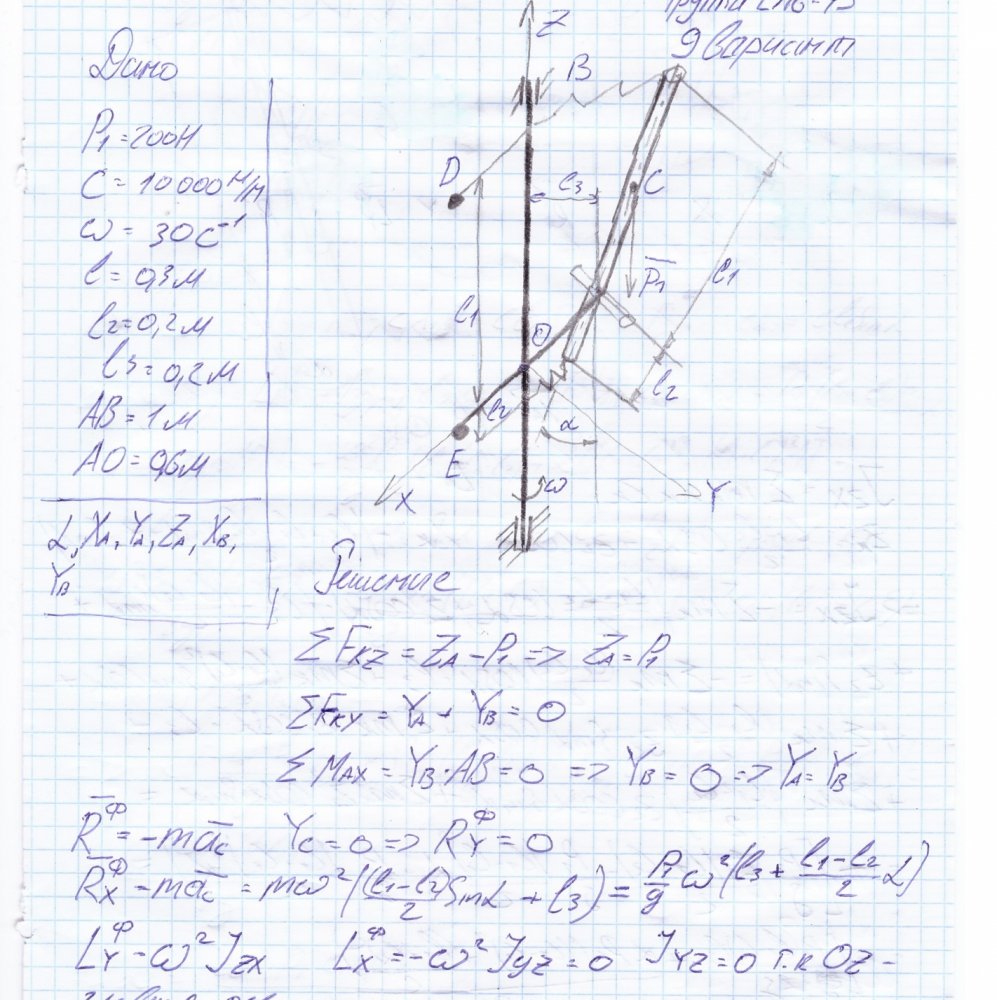 Группа
9 Вариант
Дано
P₁ = 200Н
C = 10000 Н/м
ω = 30 с⁻¹
l = 0,3м
l₂ = 0,2м
l₃ = 0,2м
AB = 1м
AO = 0,6м
α, Xₐ, Yₐ, Zₐ, X_B,
Y_B
Z
B
D
l₃
C
P̅₁
l₁
l₁
O
l₂
l₂
α
E
ω
X
Y
Решение
ΣF_KZ = Z_A - P₁ => Z_A = P₁
ΣF_KY = Y_A + Y_B = 0
ΣM_AX = Y_B·AB = 0 => Y_B = 0 => Y_A = Y_B
R̅^Ф = -ma̅_c Y_C = 0 => R_Y^Ф = 0
R̅_X^Ф - ma̅_c = mω²((l₁-l₂)/2 Sinα + l₃) = P₁/g ω²(l₃ + (l₁-l₂)/2 α)
L_Y^Ф - ω²J_ZX L_X^Ф = -ω²J_yz = 0 J_YZ = 0 т.к OZ -